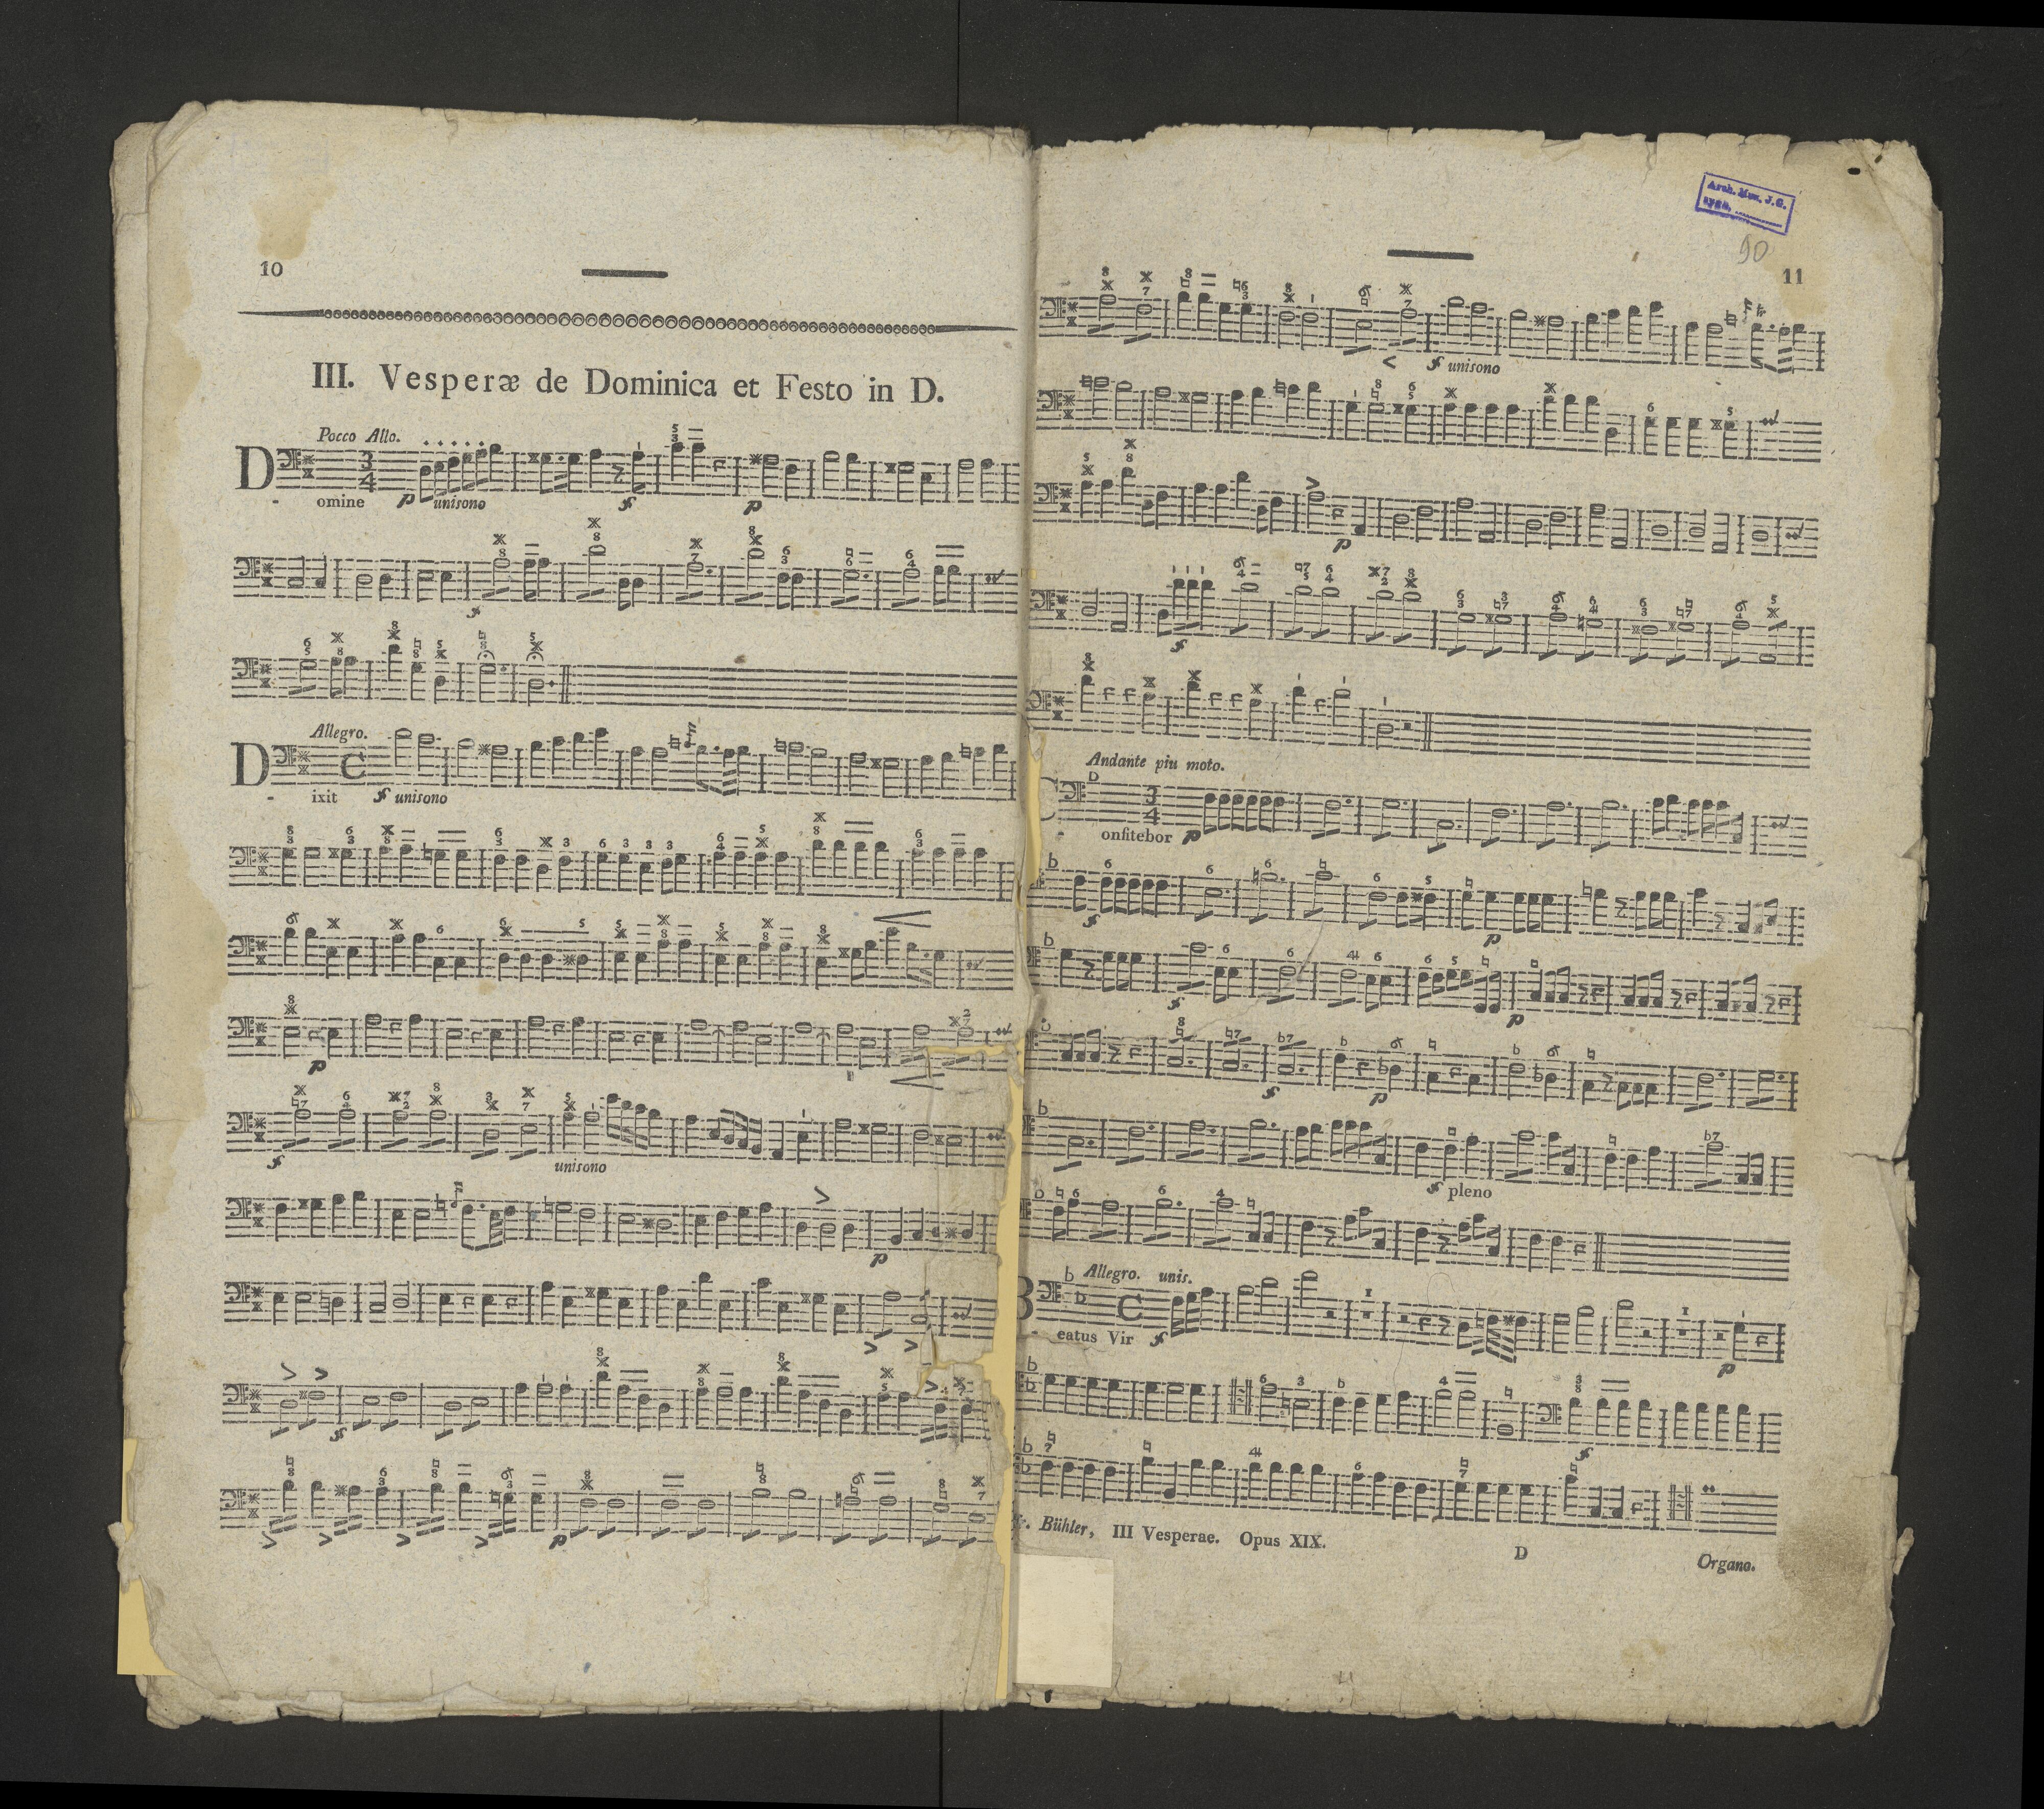 10
III. Vesperæ de Dominica et Festo in D.
Pocco Allo.
D
- omine p unisono f p
f
Allegro.
D
- ixit f unisono
p
f unisono
p
f
Arch. Mus. J.G.
sygn.
90
11
f unisono
p
f
Andante piu moto.
- onfitebor p
f p
f p
f p
f pleno
Allegro. unis.
B
- eatus Vir f p
f
Bühler, III Vesperae. Opus XIX. D Organo.